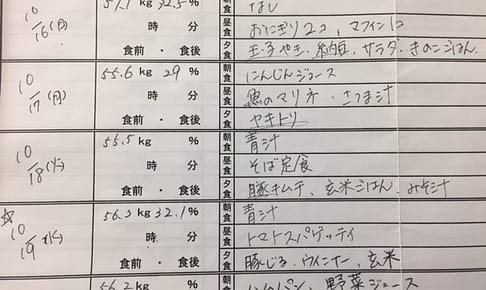 10/16(日) 57.1 kg 32.5 % 朝食 なし
時 分 昼食 おにぎり2コ、マフィン1コ
食前・食後 夕食 玉子やき・納豆・サラダ・きのこごはん
10/17(月) 55.6 kg 29 % 朝食 にんじんジュース
時 分 昼食 魚のマリネ・さつま汁
食前・食後 夕食 ヤキトリ
10/18(火) 55.5 kg 朝食 青汁
時 分 昼食 そば定食
食前・食後 夕食 豚キムチ、玄米ごはん、みそ汁
10/19(水) 56.3 kg 32.1 % 朝食 青汁
時 分 昼食 トマトスパゲッティ
食前・食後 夕食 豚じる、ウインナー、玄米
56.2 kg パン、野菜ジュース